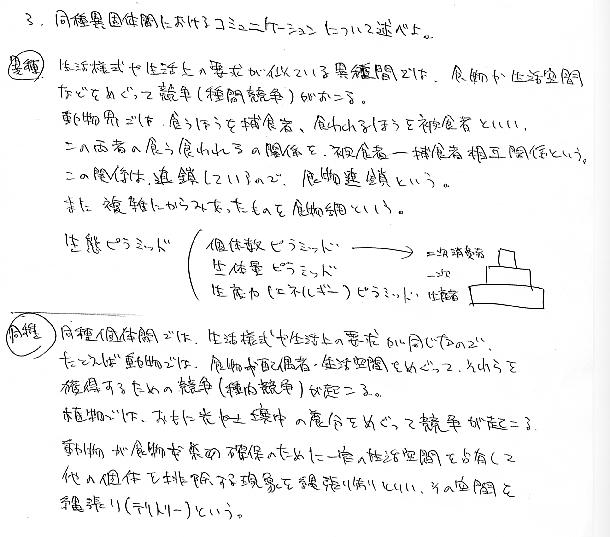 3. 同種異固体間におけるコミュニケーションについて述べよ。
異種 生活様式や生活上の要求が似ている異種間では、食物や生活空間
などをめぐって競争(種間競争)がおこる。
動物界では、食うほうを捕食者、食われるほうを被食者といい、
この両者の食う食われるの関係を、被食者ー捕食者相互関係という。
この関係は、連鎖しているので、食物連鎖という。
また複雑にからみあったものを食物網という。
生態ピラミッド ( 個体数ピラミッド → 二次消費者
生体量ピラミッド 一次
生産力(エネルギー)ピラミッド 生産者
同種 同種個体間では、生活様式や生活上の要求が同じなので、
たとえば動物では、食物や配偶者・生活空間をめぐって、それらを
獲得するための競争(種内競争)が起こる。
植物では、おもに光や土壌中の養分をめぐって競争が起こる。
動物が食物や 確保のために一定の生活空間を占有して
他の個体を排除する現象を縄張り制といい、その空間を
縄張り(テリトリー)という。